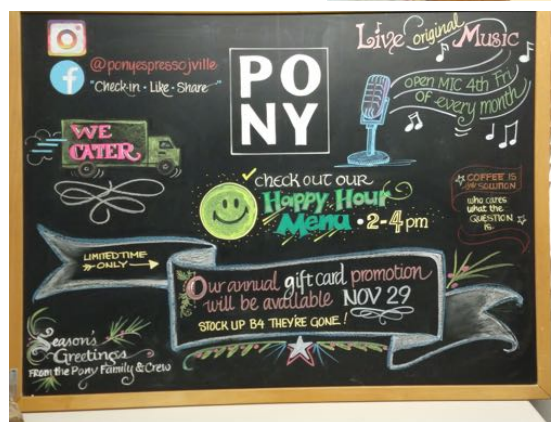 @ponyespressojville
"Check-in • Like • Share"
PO
NY
Live original Music
OPEN MIC 4th Fri
OF every month
WE
CATER
✓ CHECK OUT OUR
Happy Hour
Menu • 2-4pm
COFFEE IS
SOLUTION
who cares
what the
QUESTION
is.
LIMITED TIME
ONLY
Our annual gift card promotion
will be available NOV 29
STOCK UP B4 THEY'RE GONE!
Season's
Greetings
FROM the Pony Family & Crew